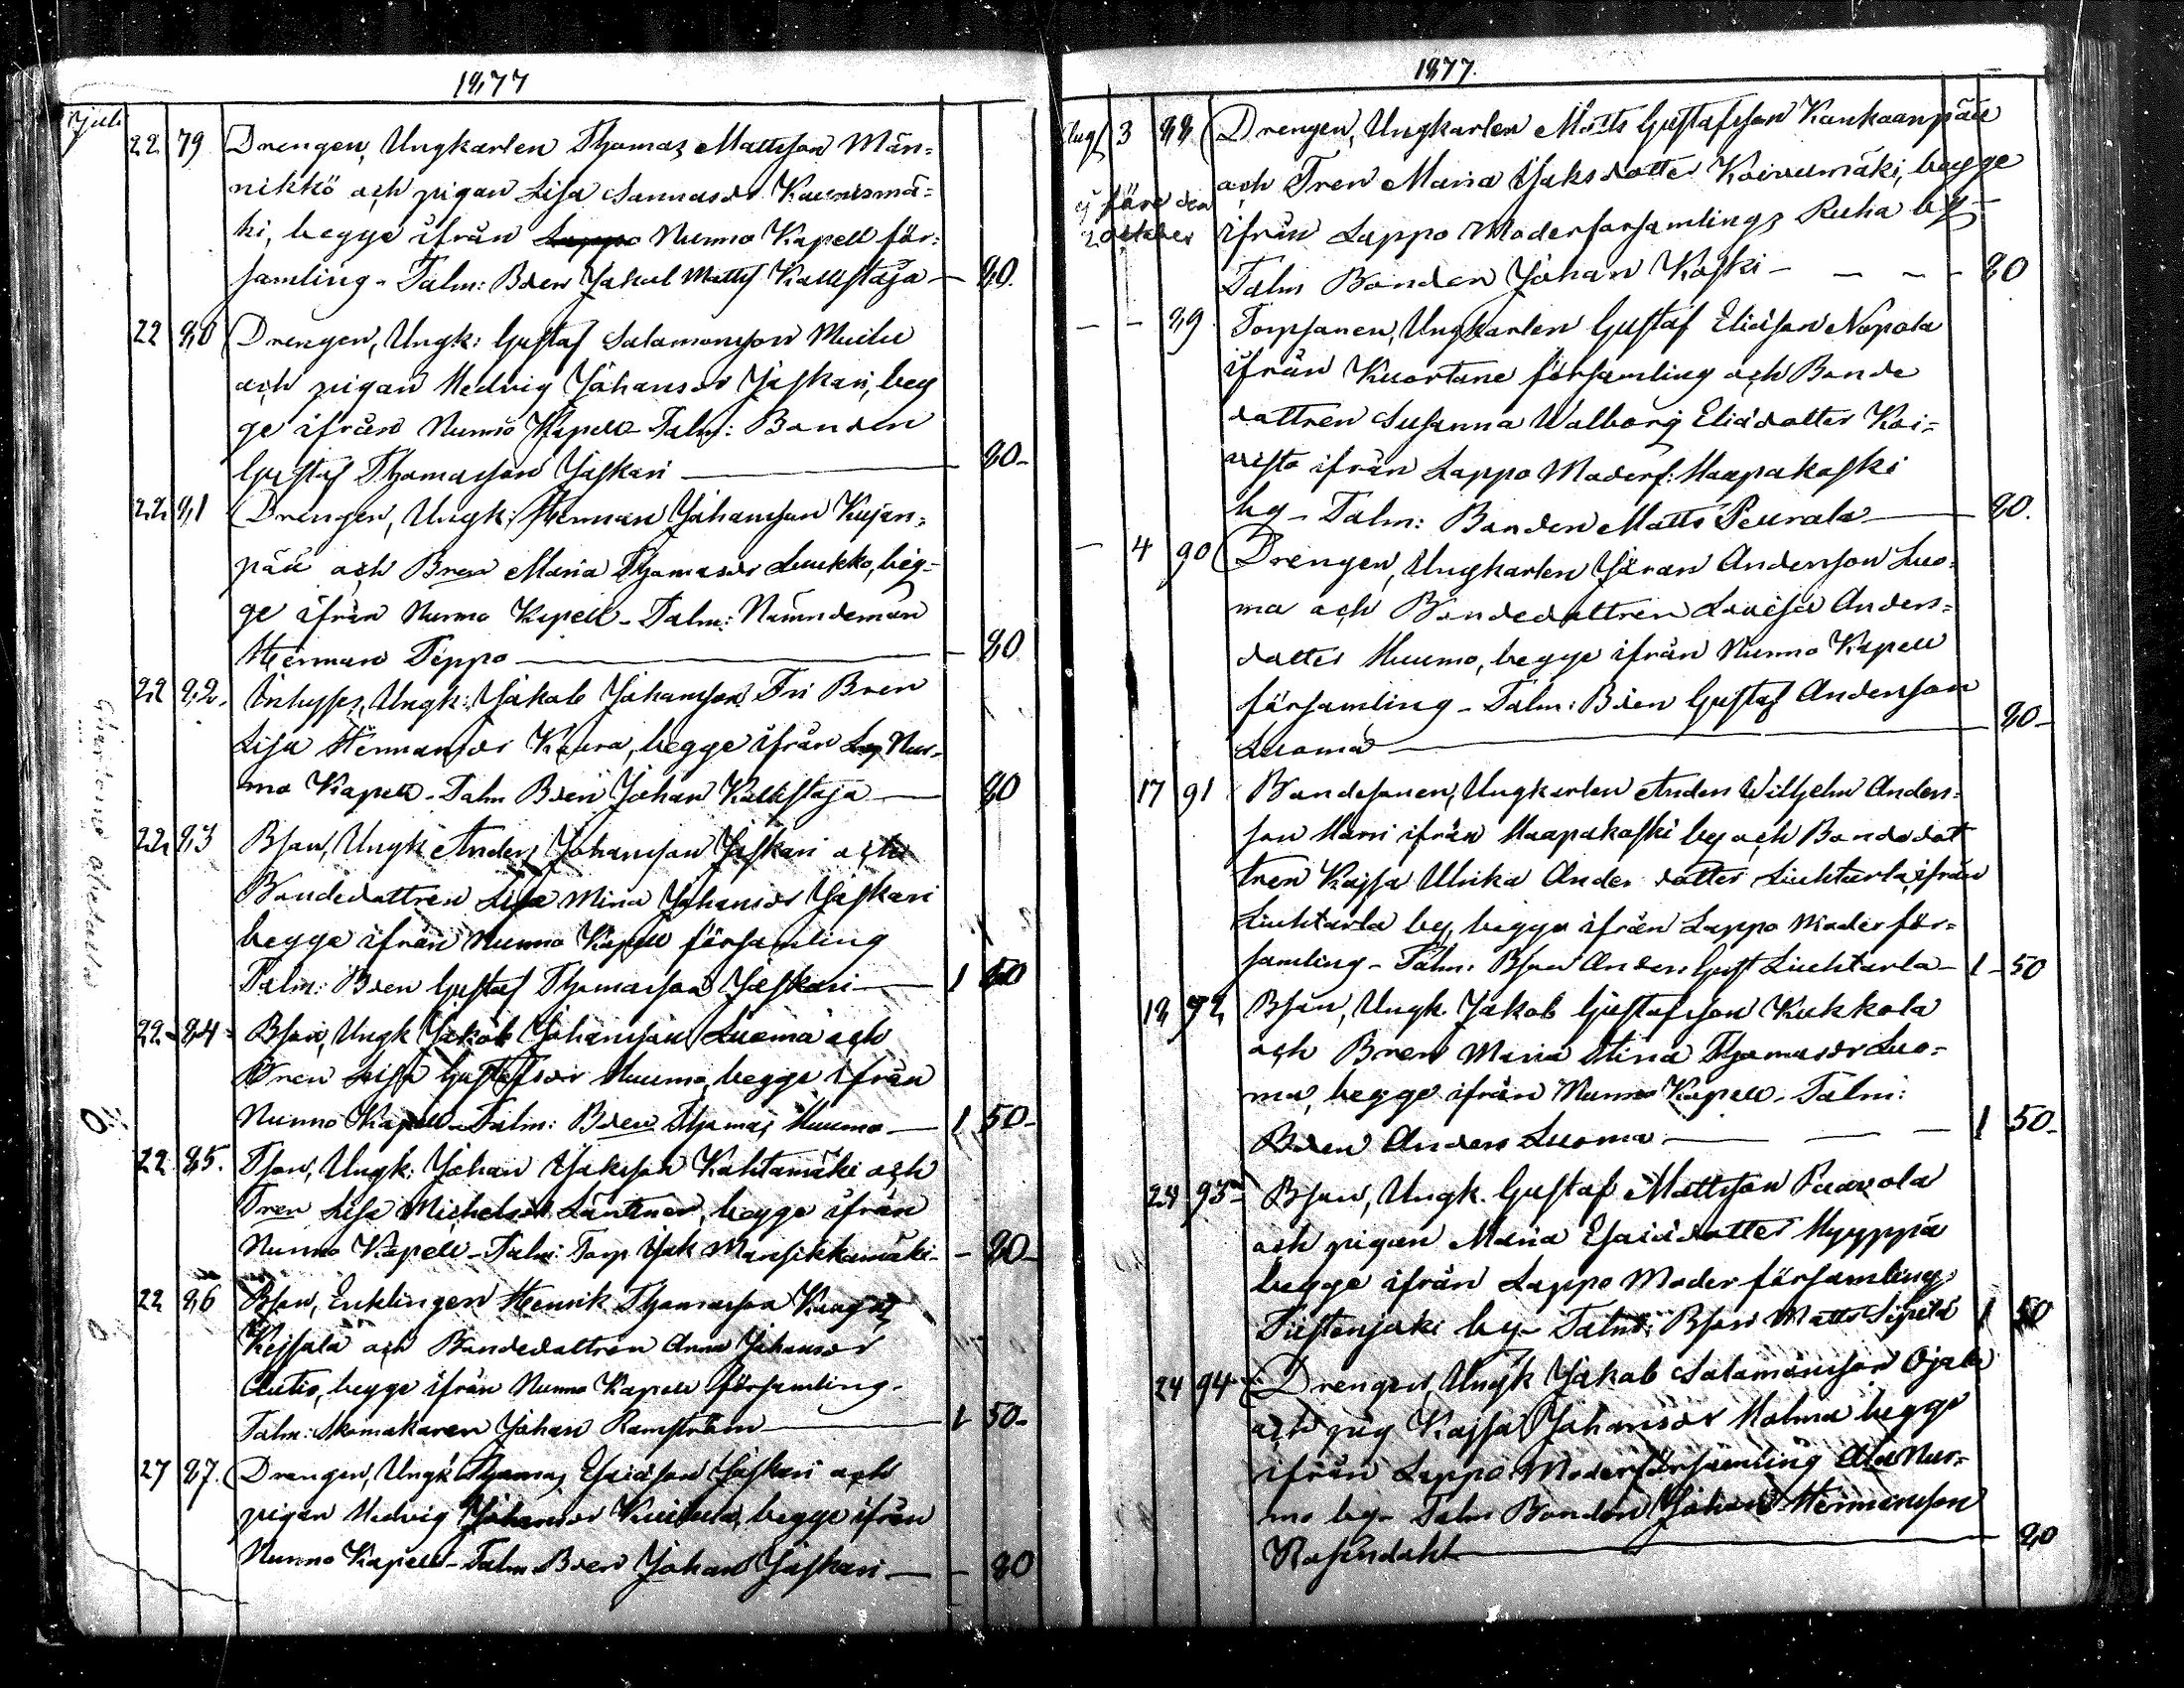 1877
Juli
22 79 Drengen, Ungkarlen Thomas Mattsson Män=
nikkö och pigan Lisa Sannasdr Kaunismä=
ki, begge ifrån Lappo Nurmo Kapell för=
samling - Talm: Bden Jakob Matts Kallistaja — 80.
22 80 Drengen, Ungk: Gustaf Salomonsson Muilu
och pigan Hedvig Johansdr Jaskari, beg
ge ifrån Nurmo Kapell - Talm: Bonden
Gustaf Thomasson Jaskari — 80-
22 81 Drengen, Ungk: Herman Johansson Kujan=
pää och Bren Maria Thomasdr Luukko, beg=
ge ifrån Nurmo Kapell - Talm: Nämndeman
Herman Teppo — 80
22 82. Inhysses, Ungk: Jakob Johansson Tri Bren
Lisa Hermansdr Kaura, begge ifrån Lap Nur=
mo Kapell - Talm Bden Johan Kallistaja — 80
22 83 Bson, Ungk Anders Johansson Jaskari och
Bondedottren Lisa Mina Johansdr Jaskari
begge ifrån Nurmo Kapell församling
Talm: Bden Gustaf Thomasson Jaskari — 1 50
22- 84- Bson, Ungk Jakob Johansson Luoma och
Bren Lisa Gustafsdr Huumo, begge ifrån
Nurmo Kapell - Talm: Bden Thomas Huumo — 1 50-
22 85. Tson, Ungk: Johan Jaksson Kahtamäki och
Tren Lisa Michelsdr Läntinen, begge ifrån
Nurmo Kapell - Talm: Torp Jak Mansikkamäki - 80-
22 86 Bson, Enklingen Henrik Thomasson
Keisala och Bondedottren Anna Johansdr
Autio, begge ifrån Nurmo Kapell församling.
Talm: Skomakaren Johan Ramström — 1 50-
27 87. Drengen, Ungk Thomas Esaiasson Jaskari och
pigan Hedvig Johansdr begge ifrån
Nurmo Kapell - Talm Bden Johan Jaskari — - 80
1877.
Aug 3 88 Drengen, Ungkarlen Matts Gustafsson Kankaanpää
och Tren Maria Jaksdotter Koivumäki, begge
ej före den
2 october
ifrån Lappo Moderförsamlings Ruha by -
Talm Bonden Johan Koski - — — - 80
- - 89 Torpsonen, Ungkarlen Gustaf Eliasson Nopola
ifrån Kuortane församling och Bonde
dottren Susanna Walborg Eliadotter Koi=
visto ifrån Lappo Moderf: Haapakoski
by - Talm: Bonden Matts Peurala — 80.
- 4 90 Drengen, Ungkarlen Göran Andersson Luo=
ma och Bondedottren Lovisa Anders=
dotter Huumo, begge ifrån Nurmo Kapell
församling - Talm: Bden Gustaf Andersson
Luoma — 80-
17 91 Bondesonen, Ungkarlen Anders Wilhelm Anders=
son Harri ifrån Haapakoski by och Bondedot
tren Kajsa Ulrika Anders dotter Liuhtarla, ifrån
Liuhtarla by, begge ifrån Lappo Moderför=
samling - Talm: Bson Anders Gust Liuhtarla - 1 - 50
18 92 Bson, Ungk. Jakob Gustafsson Kukkola
och Bren Maria Stina Thomasdr Luo=
ma, begge ifrån Nurmo Kapell - Talm:
Bden Anders Luoma — — — 1 50-
24 93- Bson, Ungk. Gustaf Mattsson Paavola
och pigan Maria Esaiadotter Hyyppä
begge ifrån Lappo Moderförsamling
Tiistenjoki by - Talm: Bson Matts Sipilä 1 50
24 94 Drengen, Ungk Jakob Salomonsson Ojala
och pig Kajsa Johansdr Holma begge
ifrån Lappo Moderförsamling Ala Nur=
mo by - Talm Bonden Johan Hermansson
Rosendahl — 80